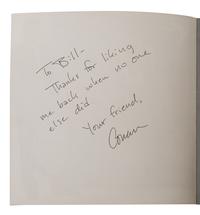 To Bill-
Thanks for liking
me back when no one
else did
Your friend,
Conan